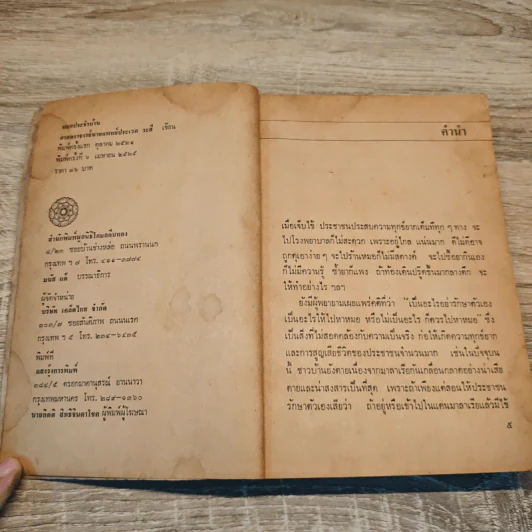 หมอประจำบ้าน
ศาสตราจารย์นายแพทย์ประเวศ วะสี เขียน
พิมพ์ครั้งแรก ตุลาคม ๒๕๒๑
พิมพ์ครั้งที่ ๖ เมษายน ๒๕๒๕
ราคา ๑๖ บาท
สำนักพิมพ์มูลนิธิโกมลคีมทอง
๘/๒๓ ซอยบ้านช่างหล่อ ถนนพรานนก
กรุงเทพ ฯ ๗ โทร. ๔๑๑-๓๗๔๔
บรรณาธิการ
ผู้จัดจำหน่าย
บริษัท เคล็ดไทย จำกัด
ซอยสันติภาพ ถนนนเรศ
กรุงเทพ ฯ ๕ โทร. ๒๓๔-๖๔๓๕
พิมพ์ที่
แสงรุ้งการพิมพ์
๑๘๔/๕ ตรอกฌาคานุสรณ์ ยานนาวา
กรุงเทพมหานคร โทร. ๒๘๙-๑๓๖๐
ผู้พิมพ์ผู้โฆษณา
คำนำ
เมื่อเจ็บไข้ ประชาชนประสบความทุกข์ยากเต็มที่ทุก ๆ ทาง จะ
ไปโรงพยาบาลก็ไม่สะดวก เพราะอยู่ไกล แน่นมาก ดีไม่ดีอาจ
ถูกดุเอาง่าย ๆ จะไปร้านหมอก็ไม่มีสตางค์ จะไปซื้อยากินเอง
ก็ไม่มีความรู้ ซ้ำยาก็แพง ถ้าท้องเดินปรู๊ดขึ้นมากลางดึก จะ
ให้ทำอย่างไร ฯลฯ
ยังมีผู้พยายามเผยแพร่คติที่ว่า "เป็นอะไรอย่ารักษาตัวเอง
เป็นอะไรให้ไปหาหมอ หรือไม่เป็นอะไร ก็ควรไปหาหมอ" ซึ่ง
เป็นสิ่งที่ไม่สอดคล้องกับความเป็นจริง ก่อให้เกิดความทุกข์ยาก
และการสูญเสียชีวิตของประชาชนจำนวนมาก เช่นในปัจจุบัน
นี้ ชาวบ้านยังตายเนื่องจากมาลาเรียกันเกลื่อนกลาดอย่างน่าเสีย
ดายและน่าสงสารเป็นที่สุด เพราะถ้าเพียงแต่สอนให้ประชาชน
รักษาตัวเองเสียว่า ถ้าอยู่หรือเข้าไปในแดนมาลาเรียแล้วมีไข้
๕